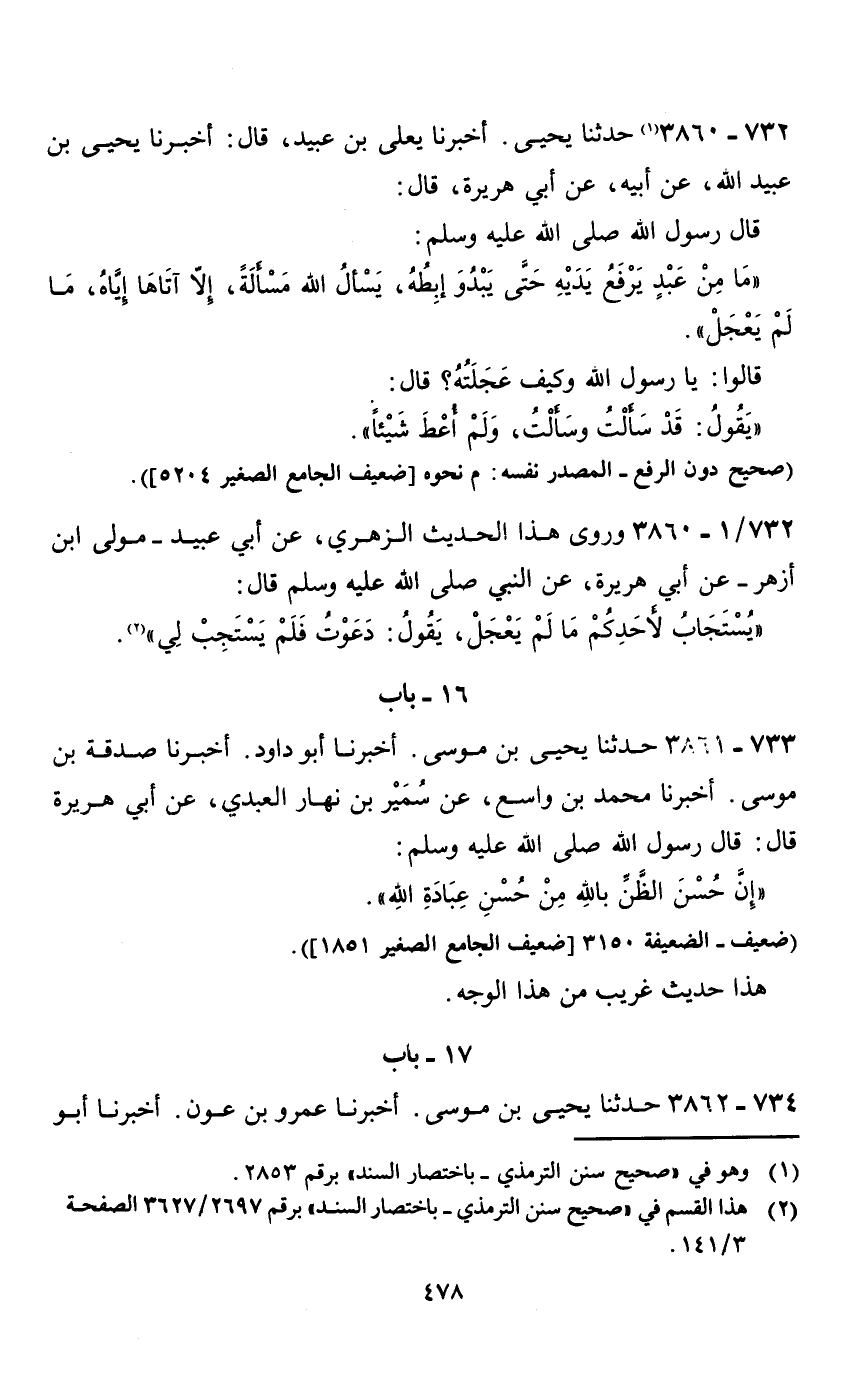 ٧٣٢ ـ ٣٨٦٠(١) حدثنا يحيى. أخبرنا يعلى بن عبيد، قال: أخبرنا يحيى بن
عبيد الله، عن أبيه، عن أبي هريرة، قال:
قال رسول الله صلى الله عليه وسلم:
«مَا مِنْ عَبْدٍ يَرْفَعُ يَدَيْهِ حَتَّى يَبْدُوَ إِبِطُهُ، يَسْأَلُ الله مَسْأَلَةً، إِلّا آتَاهَا إِيَّاهُ، مَا
لَمْ يَعْجَلْ».
قالوا: يا رسول الله وكيف عَجَلَتُهُ؟ قال:
«يَقُولُ: قَدْ سَأَلْتُ وسَأَلْتُ، وَلَمْ أُعْطَ شَيْئاً».
(صحيح دون الرفع ـ المصدر نفسه: م نحوه [ضعيف الجامع الصغير ٥٢٠٤]).
١/٧٣٢ ـ ٣٨٦٠ وروى هذا الحديث الزهري، عن أبي عبيد ـ مولى ابن
أزهر ـ عن أبي هريرة، عن النبي صلى الله عليه وسلم قال:
«يُسْتَجَابُ لأَحَدِكُمْ مَا لَمْ يَعْجَلْ، يَقُولُ: دَعَوْتُ فَلَمْ يَسْتَجِبْ لِي»(٢).
١٦ ـ باب
٧٣٣ ـ ٣٨٦١ حدثنا يحيى بن موسى. أخبرنا أبو داود. أخبرنا صدقة بن
موسى. أخبرنا محمد بن واسع، عن سُمَيْر بن نهار العبدي، عن أبي هريرة
قال: قال رسول الله صلى الله عليه وسلم:
«إِنَّ حُسْنَ الظَّنِّ بالله مِنْ حُسْنِ عِبَادَةِ اللهِ».
(ضعيف ـ الضعيفة ٣١٥٠ [ضعيف الجامع الصغير ١٨٥١]).
هذا حديث غريب من هذا الوجه.
١٧ ـ باب
٧٣٤ ـ ٣٨٦٢ حدثنا يحيى بن موسى. أخبرنا عمرو بن عون. أخبرنا أبو
(١) وهو في «صحيح سنن الترمذي ـ باختصار السند» برقم ٢٨٥٣.
(٢) هذا القسم في «صحيح سنن الترمذي ـ باختصار السند» برقم ٣٦٢٧/٢٦٩٧ الصفحة
١٤١/٣.
٤٧٨